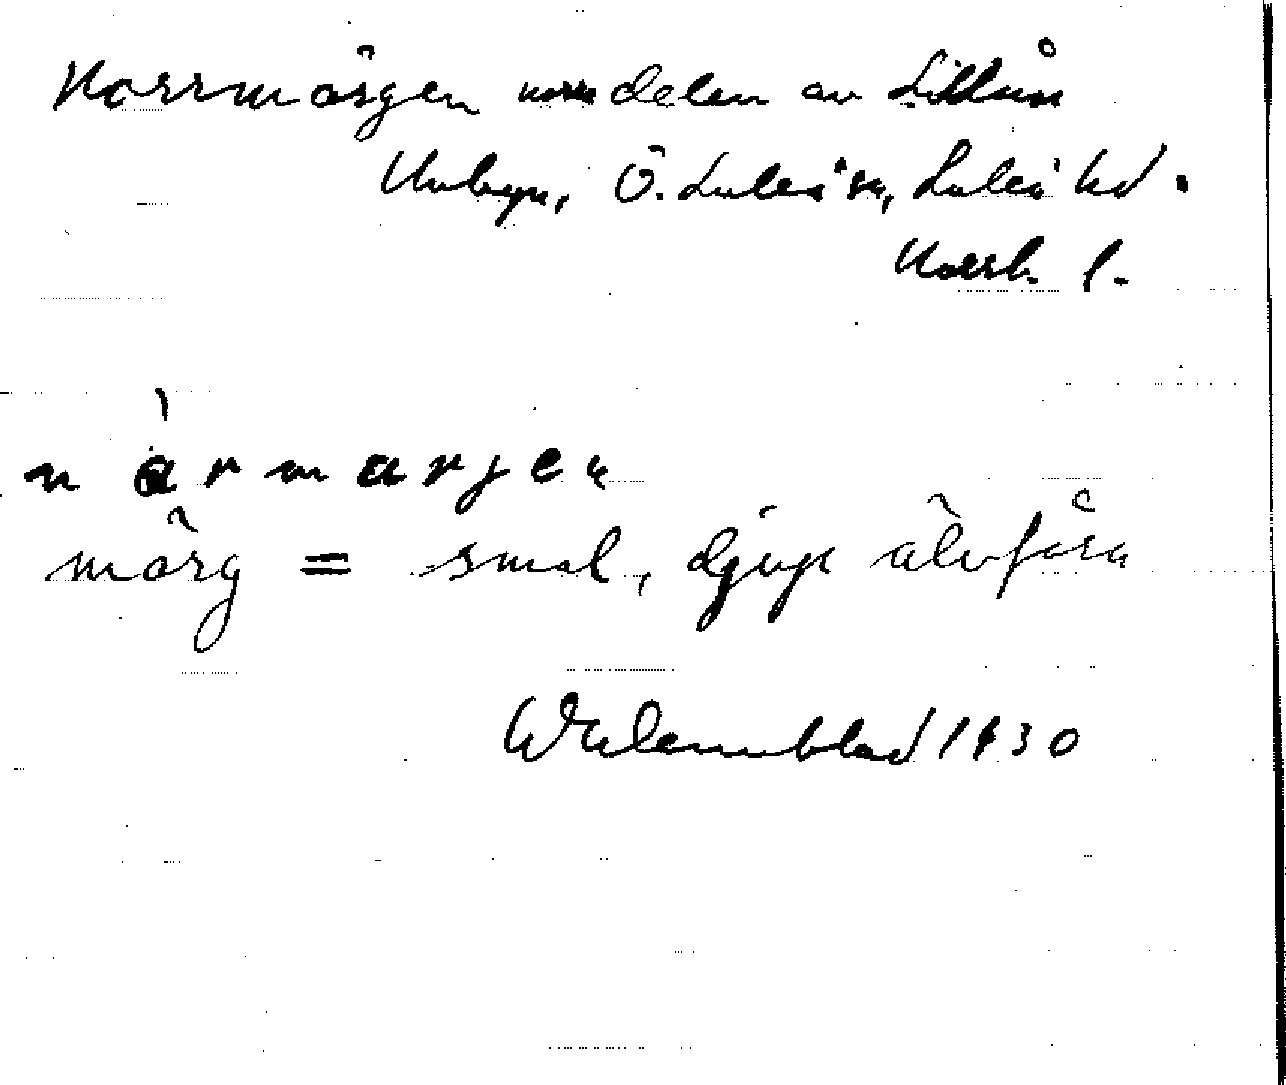 Norrmärgen norra delen av Lillån
Unbyn, Ö. Luleå sn, Luleå hd.
Norrb. l.
nàrmarjen
märg = smal, djup älvfåra
Wulemblad 1930